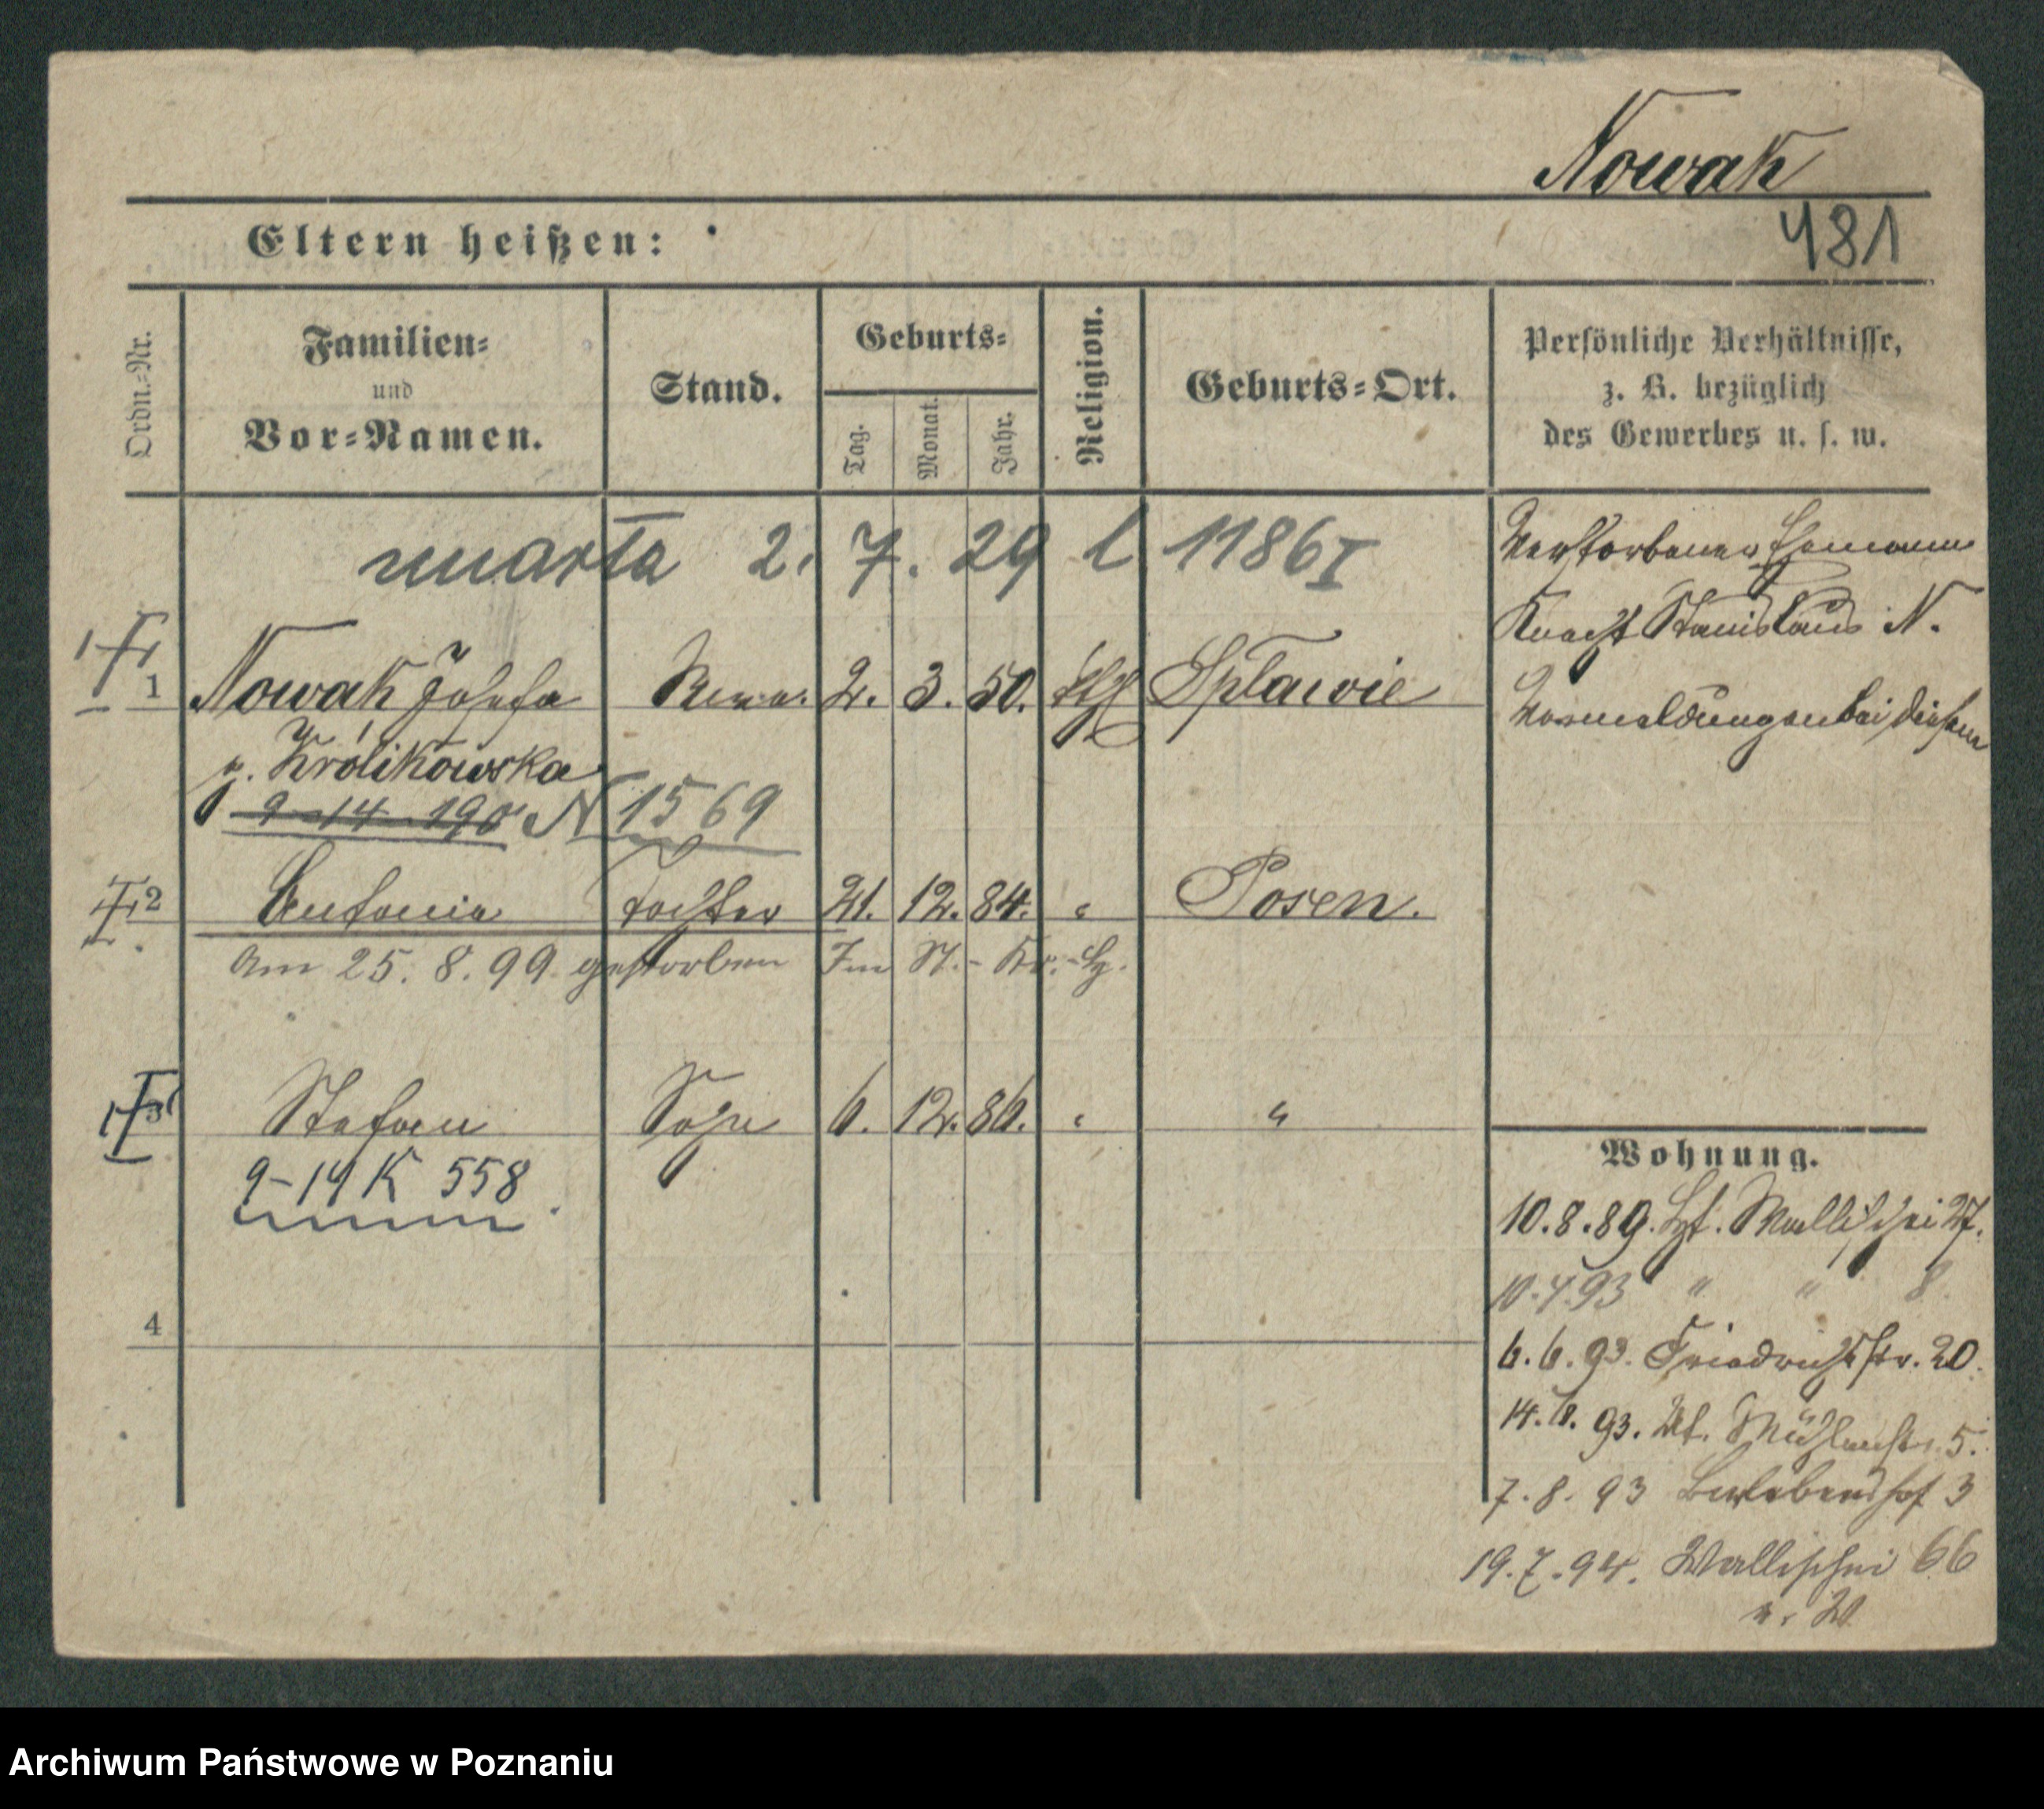 Nowak
481
Eltern heißen:
Ordn.-Nr.
Familien-
und
Vor-Namen.
Stand.
Geburts-
Tag.
Monat.
Jahr.
Religion.
Geburts-Ort.
Persönliche Verhältnisse,
z. B. bezüglich
des Gewerbes u. s. w.
umarła 2. 7. 29 l 1186 I
Verstorbener Ehemann
Knecht Stanislaus N.
Vormeldungen bei diesem
1 Nowak Josefa Wwe. 2. 3. 50. kth Splawie
g. Królikowska
9-14 190 N 1569
2 Antonia Tochter 21. 12. 84. " Posen.
Am 25. 8. 99 gestorben Im St.-Kr.-
3 Stefan Sohn 6. 12. 86. " "
9-14 K 558
4
Wohnung.
10. 8. 89. Wallischei 27.
10. 4. 93 " " 8.
6. 6. 93. Friedrichstr. 20.
14. 6. 93. Mühlenstr. 5.
7. 8. 93 3
19. 7. 94. Wallischei 66